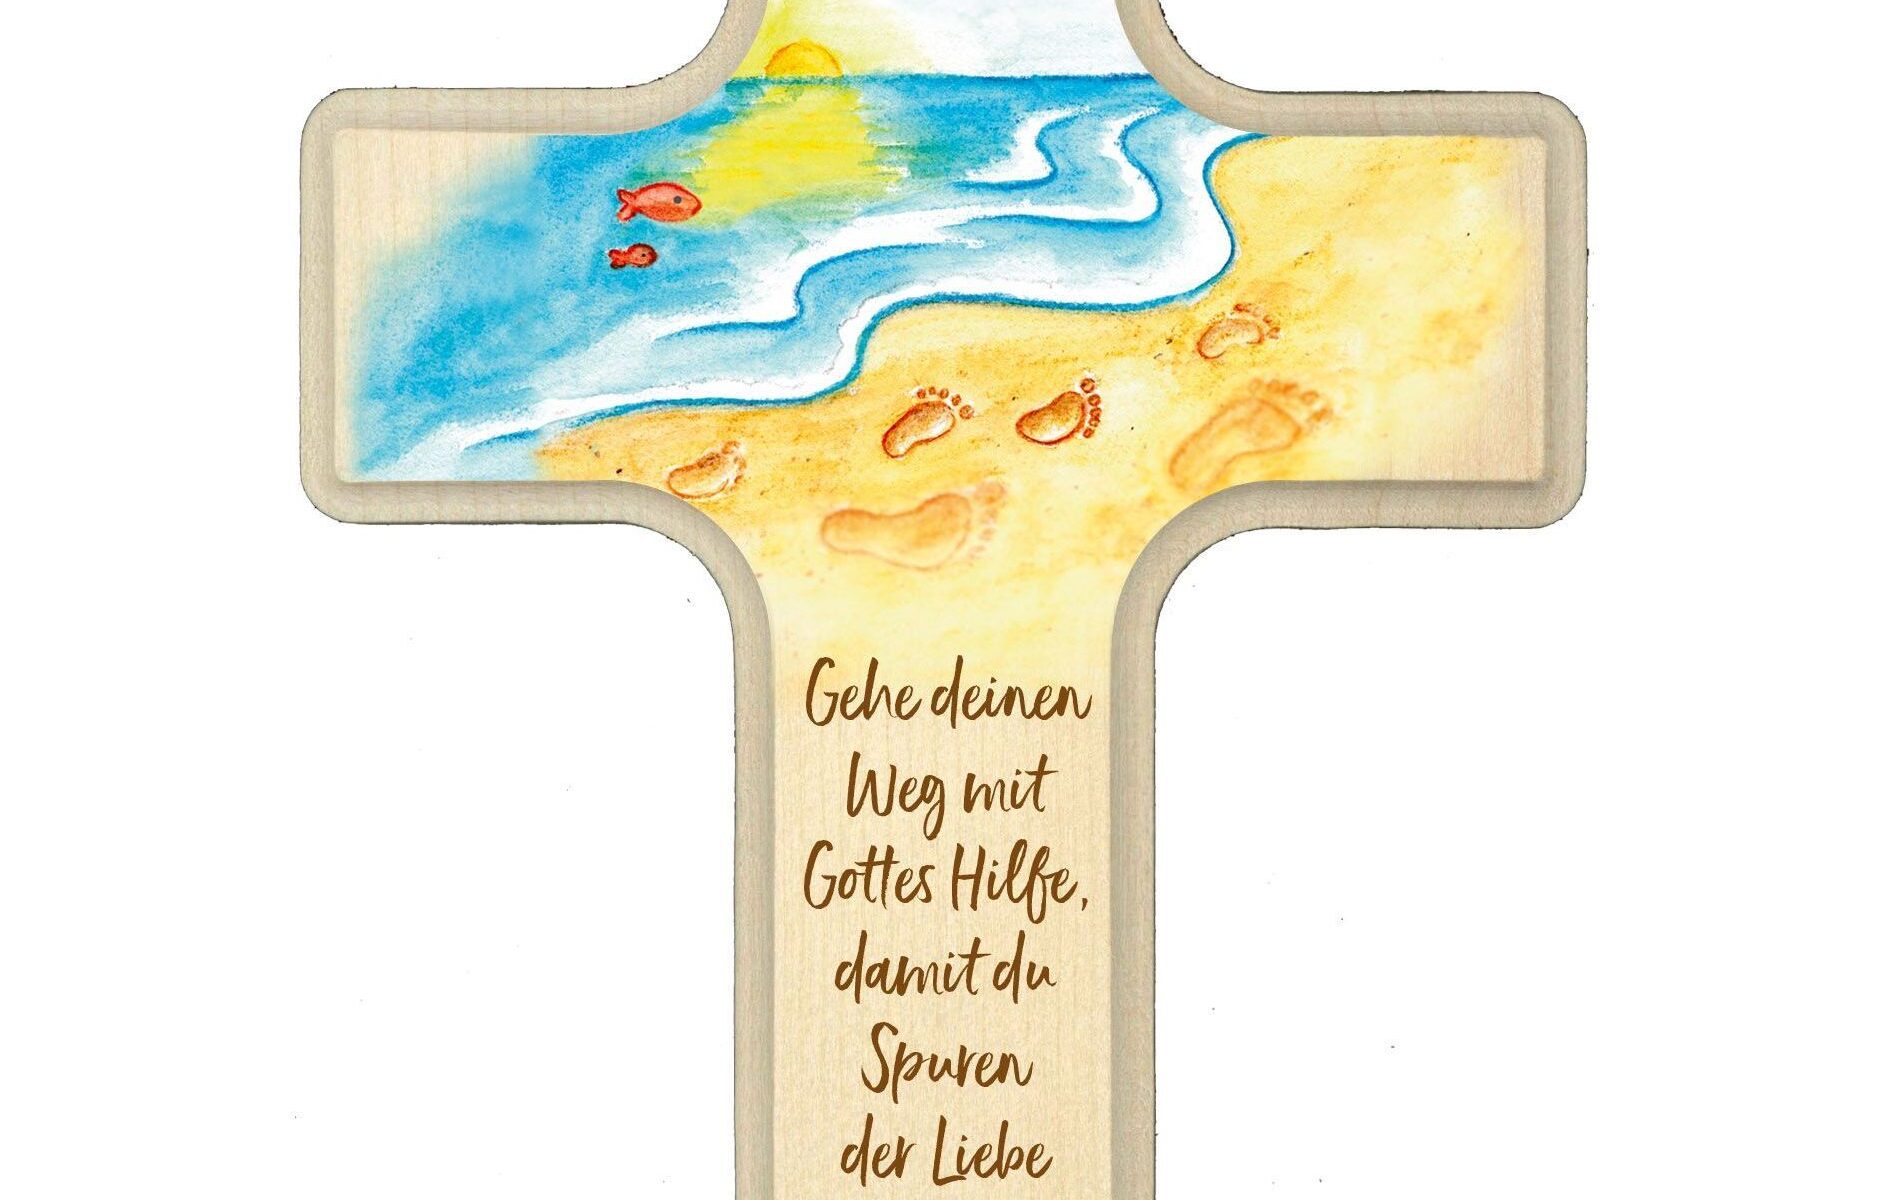 Gehe deinen
Weg mit
Gottes Hilfe,
damit du
Spuren
der Liebe